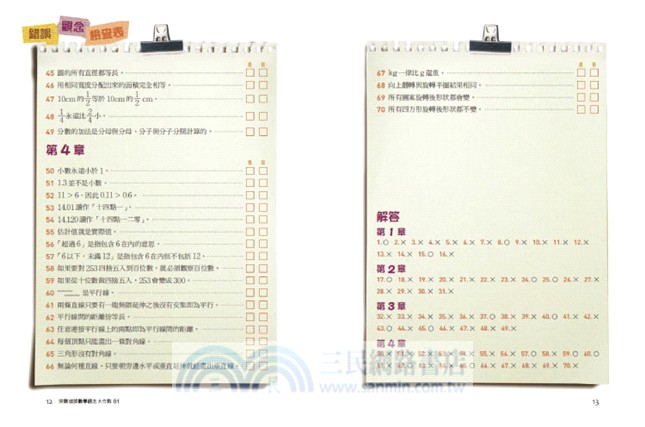 錯誤 觀念 檢查表
是 否
45 圓的所有直徑都等長。
46 用相同寬度分配出來的面積完全相等。
47 10cm的1/2等於10cm的1/2 cm。
48 1/4永遠比2/4小。
49 分數的加法是分母與分母、分子與分子分開計算的。
第4章
是 否
50 小數永遠小於1。
51 1.3並不是小數。
52 11＞6，因此0.11＞0.6。
53 14.01讀作「十四點一」。
54 14.120讀作「十四點一二零」。
55 估計值就是實際值。
56 「超過6」是指包含6在內的意思。
57 「6以下，未滿12」是指包含6在內但不包括12。
58 如果要對253四捨五入到百位數，就必須觀察百位數。
59 如果從十位數做四捨五入，253會變成300。
60 是平行線。
61 兩條直線只要有一組無限延伸之後沒有交集即為平行。
62 平行線間的距離皆等長。
63 任意連接平行線上的兩點即為平行線間的距離。
64 每個頂點只能畫出一條對角線。
65 三角形沒有對角線。
66 無論何種直線，只要朝旁邊水平或垂直延伸就能畫出垂直線。
12
是 否
67 kg一律比g還重。
68 向上翻轉與旋轉半圈結果相同。
69 所有圖案旋轉後形狀都會變。
70 所有四方形旋轉後形狀都不變。
解答
第1章
1.○ 2.× 3.× 4.× 5.× 6.× 7.× 8.○ 9.× 10.× 11.× 12.×
13.× 14.× 15.○ 16.×
第2章
17.○ 18.× 19.× 20.× 21.× 22.× 23.× 24.○ 25.○ 26.× 27.×
28.× 29.× 30.× 31.×
第3章
32.× 33.× 34.× 35.× 36.× 37.× 38.× 39.× 40.○ 41.× 42.×
43.○ 44.× 45.○ 46.× 47.× 48.× 49.×
第4章
55.× 56.× 57.× 58.× 59.× 60.○
70.×
13
三民網路書店
www.sanmin.com.tw